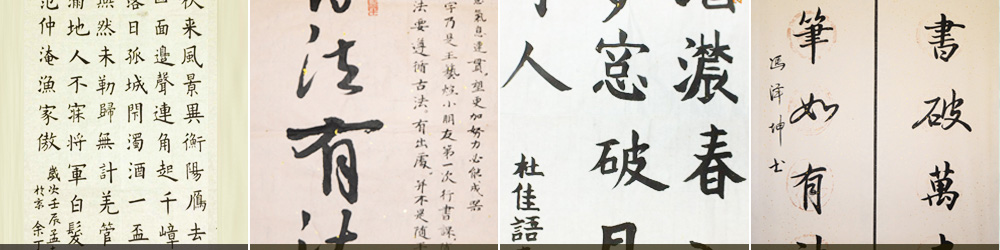 秋来風景異衡陽鴈去
四面邊聲連角起千嶂
落日孤城閉濁酒一盃
燕然未勒歸無計羌管
滿地人不寐將軍白髮
范仲淹漁家傲
歲次壬辰孟
於京余
法有法
意氣息連貫望更加努力必能成器
字乃是王藝焜小朋友第一次行書課
法要遵循古法有出處并不是隨
濃春
窓破月
人
杜佳語
書破萬
筆如有
馮澤坤书